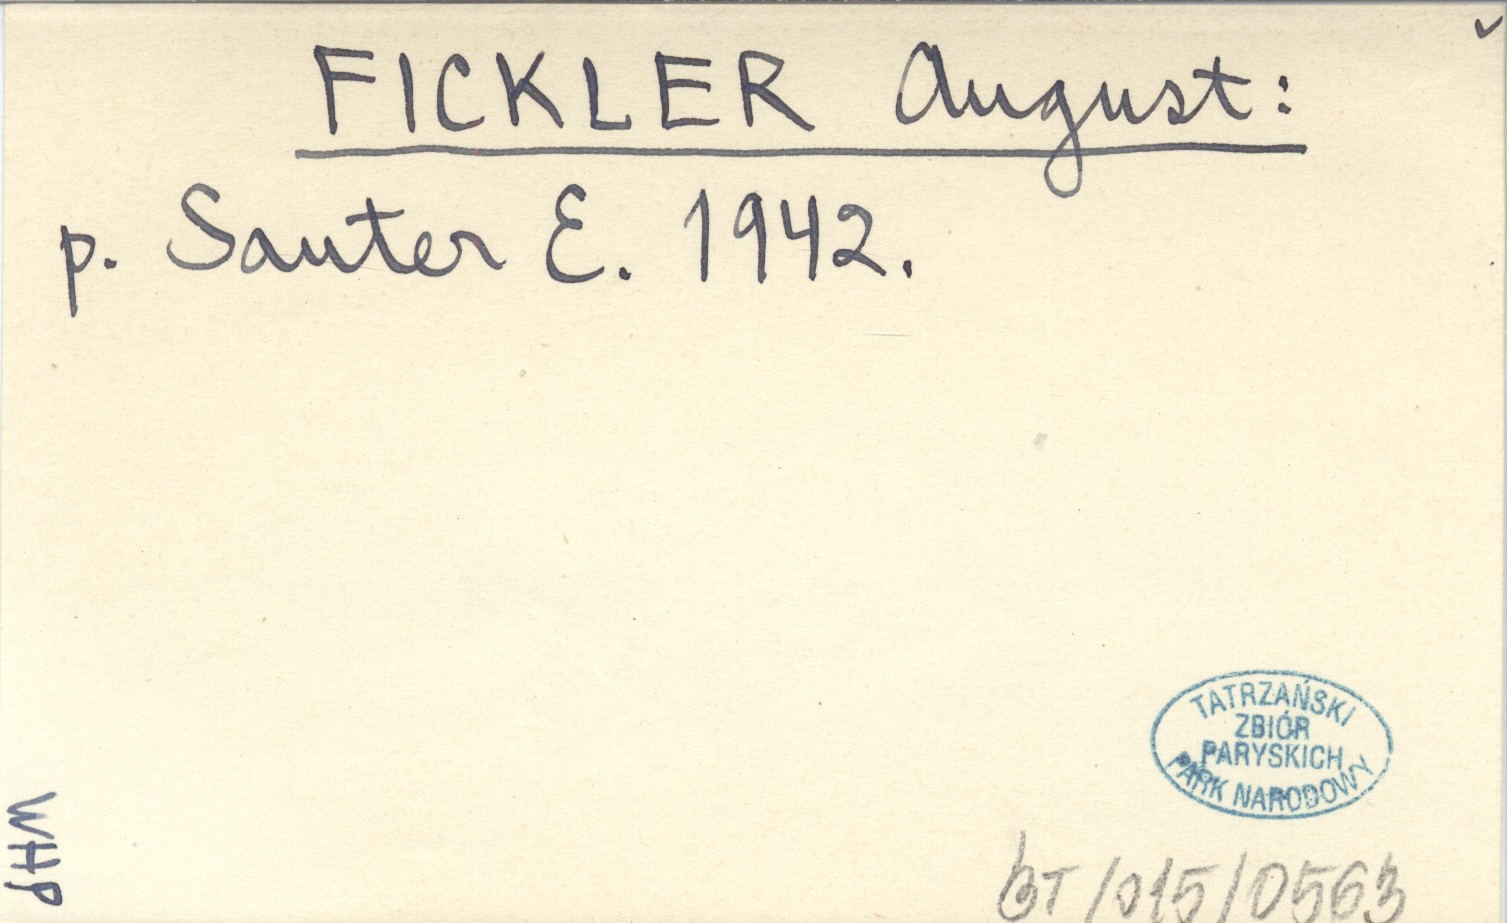 FICKLER August:
p. Sauter E. 1942.
TATRZAŃSKI
ZBIÓR
PARYSKICH
PARK NARODOWY
WHP
BT/015/0563